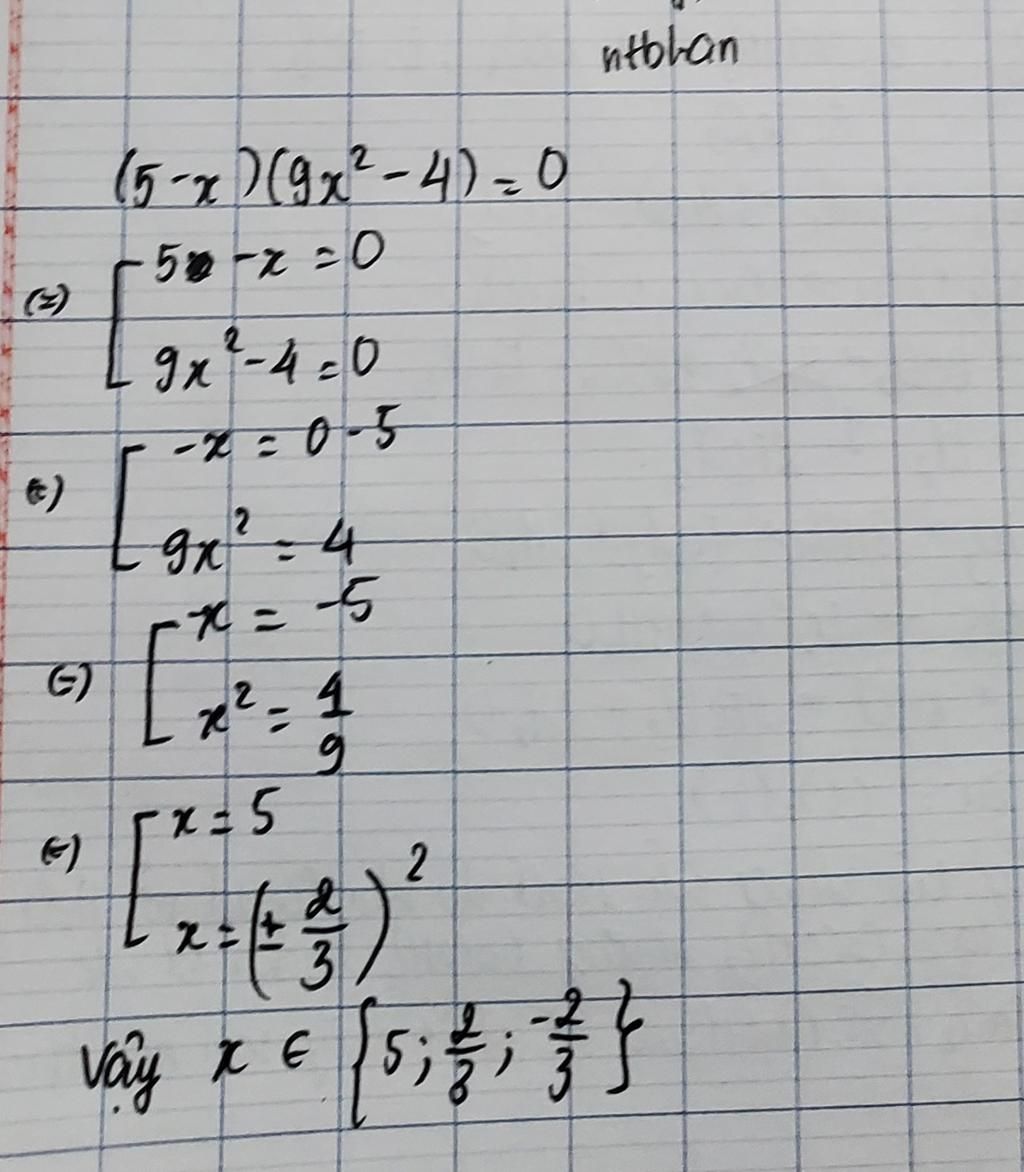 nthhan
(5-x)(9x²-4)=0
(=) [ 5 -x = 0
9x²-4=0
(=) [ -x = 0-5
9x² = 4
(=) [ -x = -5
x² = 4/9
(=) [ x = 5
x = (± 2/3)²
Vậy x ∈ {5; 2/3; -2/3}